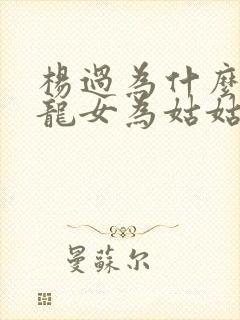 楊過為什麼
龍女為姑姑
曼蘇尔